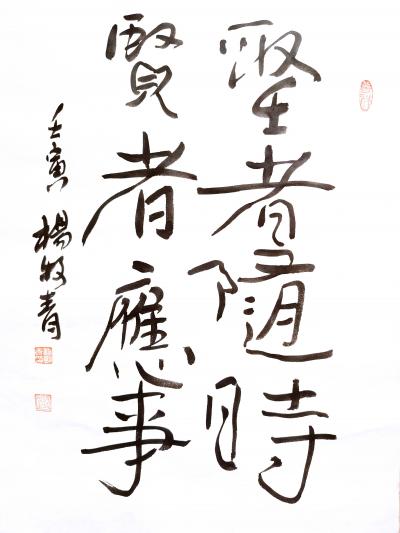 聖者隨時
賢者應事
壬寅 楊牧青